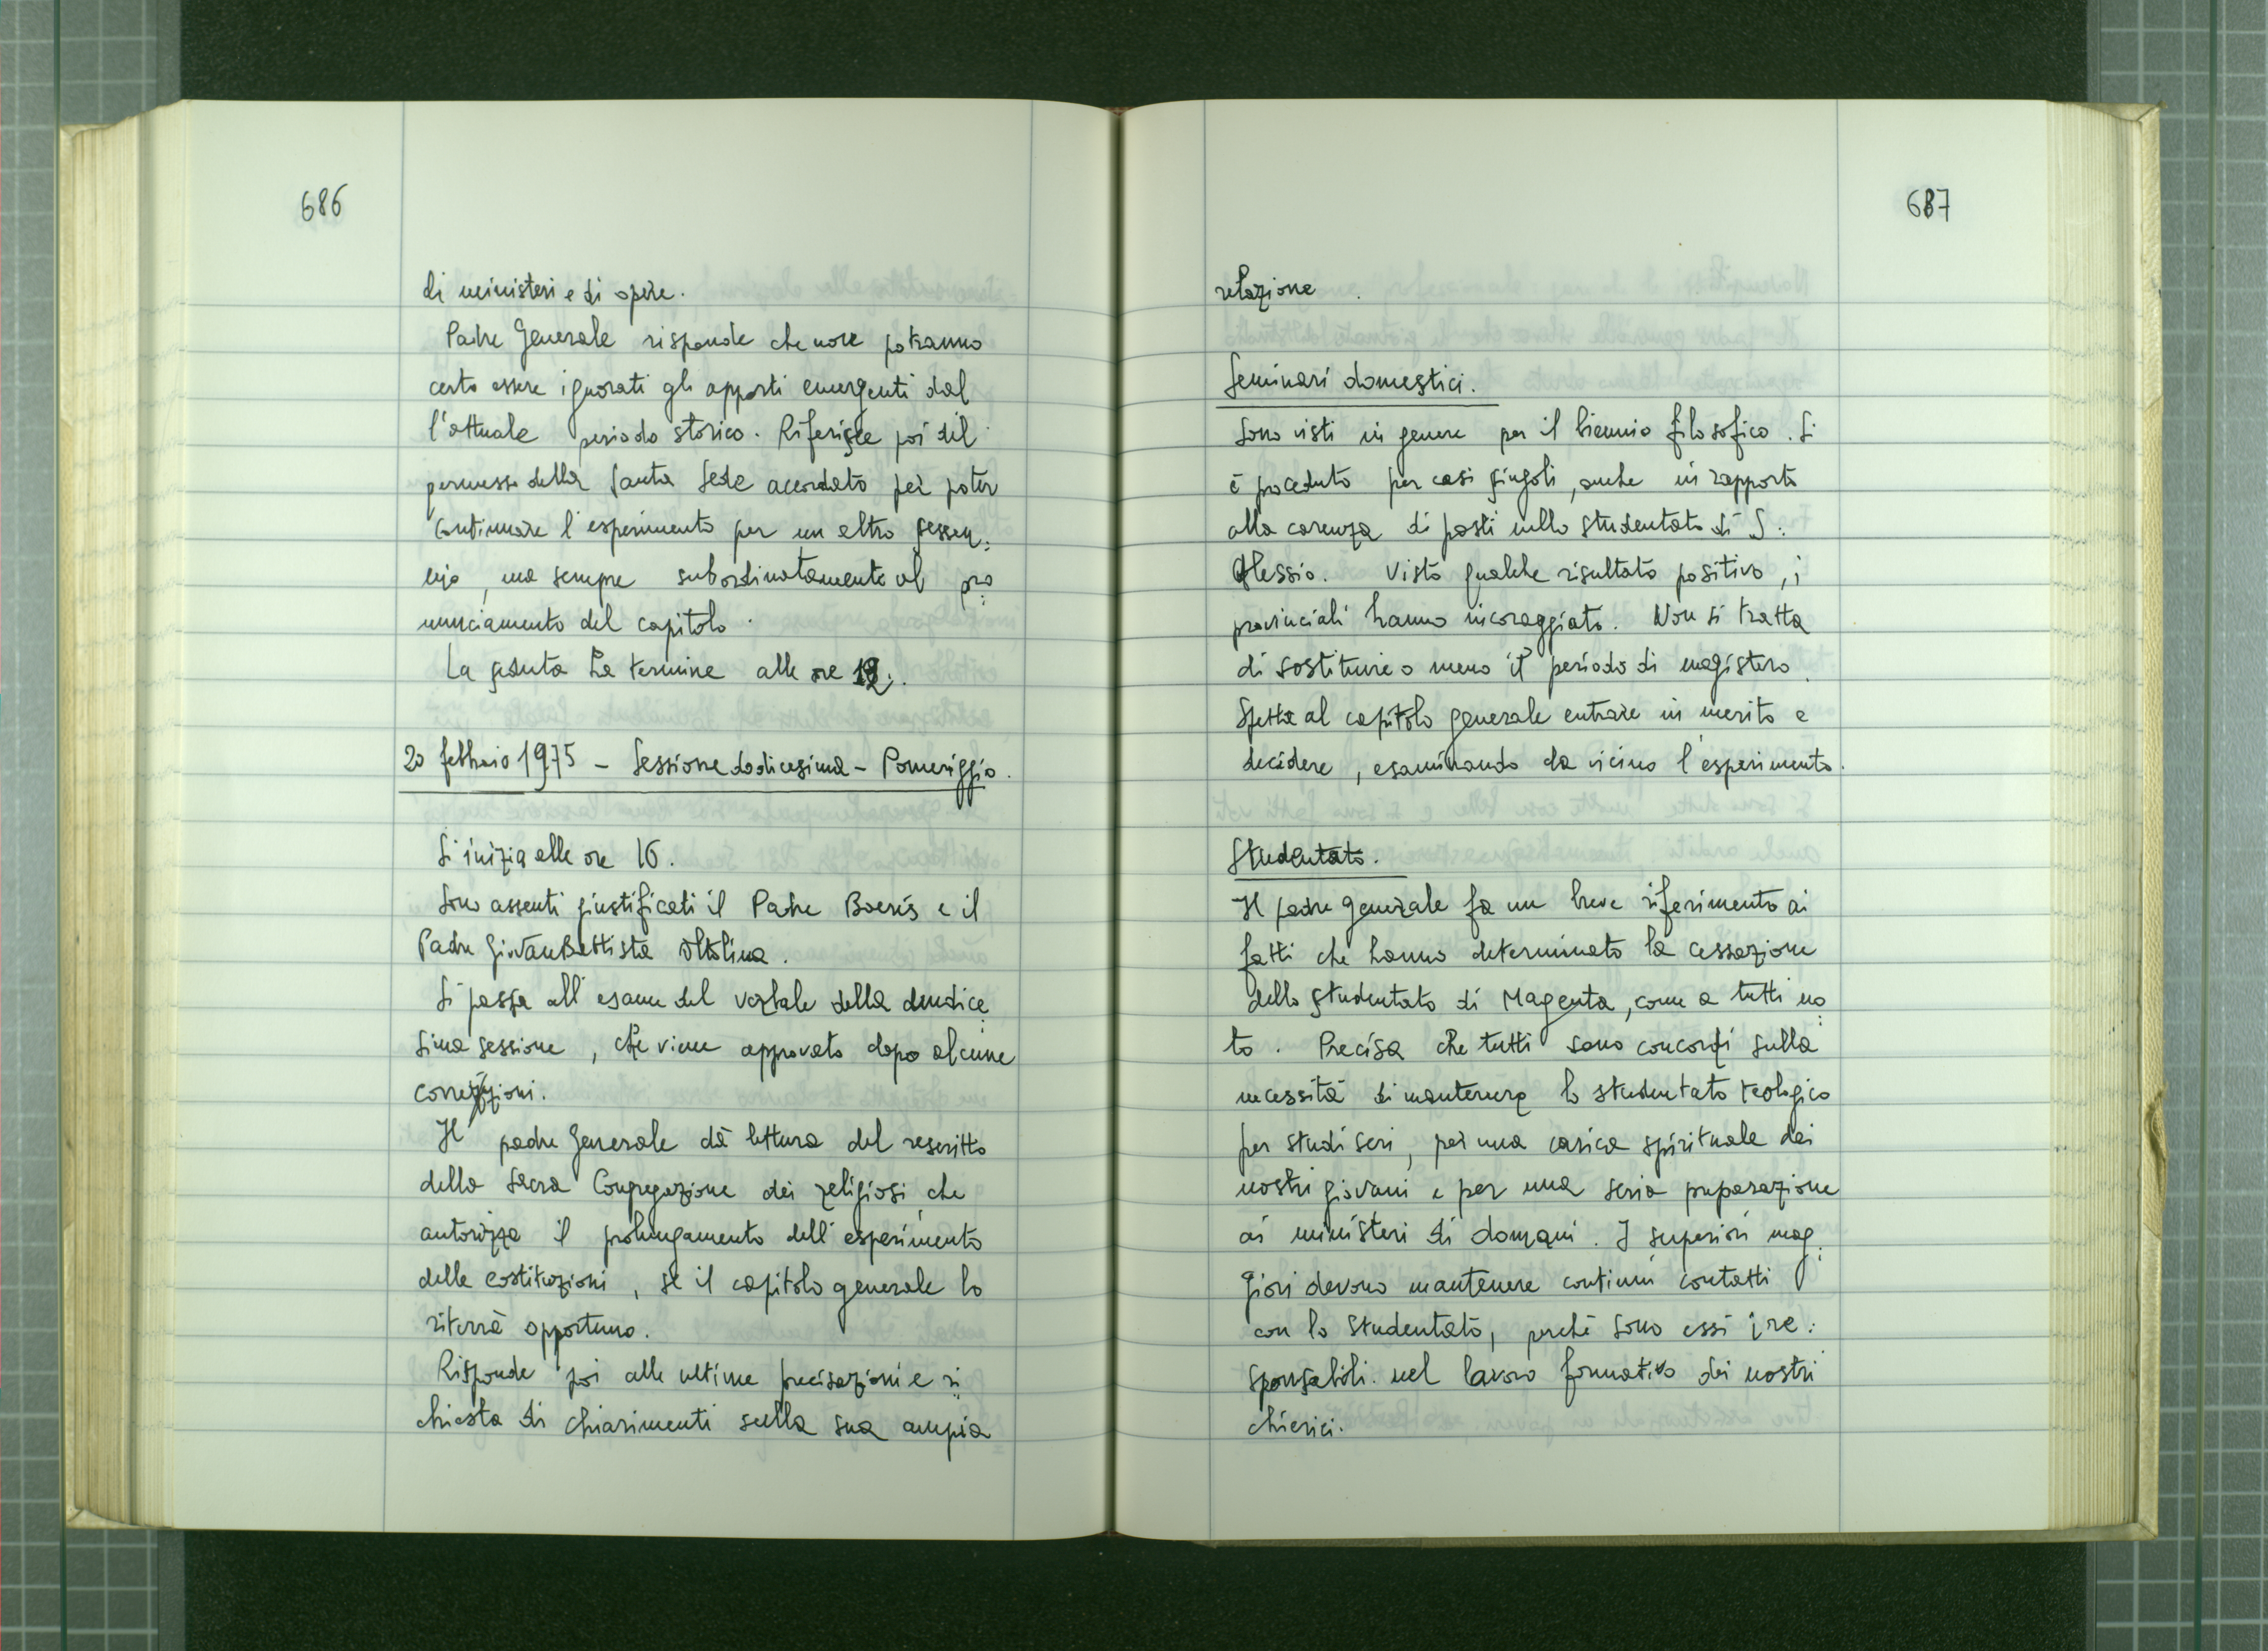 686
di ministeri e di opere.
Padre Generale risponde che non potranno
certo essere ignorati gli apporti emergenti dal
l'attuale periodo storico. Riferisce poi del
permesso della Santa Sede accordato per poter
continuare l'esperimento per un altro sessen=
nio, ma sempre subordinatamente al pro=
nunciamento del capitolo.
La seduta ha termine alle ore 12.
20 febbraio 1975 - Sessione dodicesima - Pomeriggio.
Si inizia alle ore 16.
Sono assenti giustificati il Padre Boeris e il
Padre GiovanBattista Oltolina.
Si passa all'esame del verbale della undice=
sima sessione, che viene approvato dopo alcune
correzioni.
Il padre Generale dà lettura del rescritto
della Sacra Congregazione dei religiosi, che
autorizza il prolungamento dell'esperimento
delle costituzioni, se il capitolo generale lo
riterrà opportuno.
Risponde poi alle ultime precisazioni e ri=
chiesta di chiarimenti sulla sua ampia
687
relazione.
Seminari domestici.
Sono visti in genere per il biennio filosofico. Si
è proceduto per casi singoli, anche in rapporto
alla carenza di posti nello studentato di S.
Alessio. Visto qualche risultato positivo, i
provinciali hanno incoraggiato. Non si tratta
di sostituire o meno il periodo di magistero.
Spetta al capitolo generale entrare in merito e
decidere, esaminando da vicino l'esperimento.
Studentato.
Il padre generale fa un breve riferimento ai
fatti che hanno determinato la cessazione
dello studentato di Magenta, come a tutti no=
to. Precisa che tutti sono concordi sulla
necessità di mantenere lo studentato teologico
per studi seri, per una carica spirituale dei
nostri giovani e per una seria preparazione
ai ministeri di domani. I superiori mag=
giori devono mantenere continui contatti
con lo studentato, perché sono essi i re=
sponsabili nel lavoro formativo dei nostri
chierici.